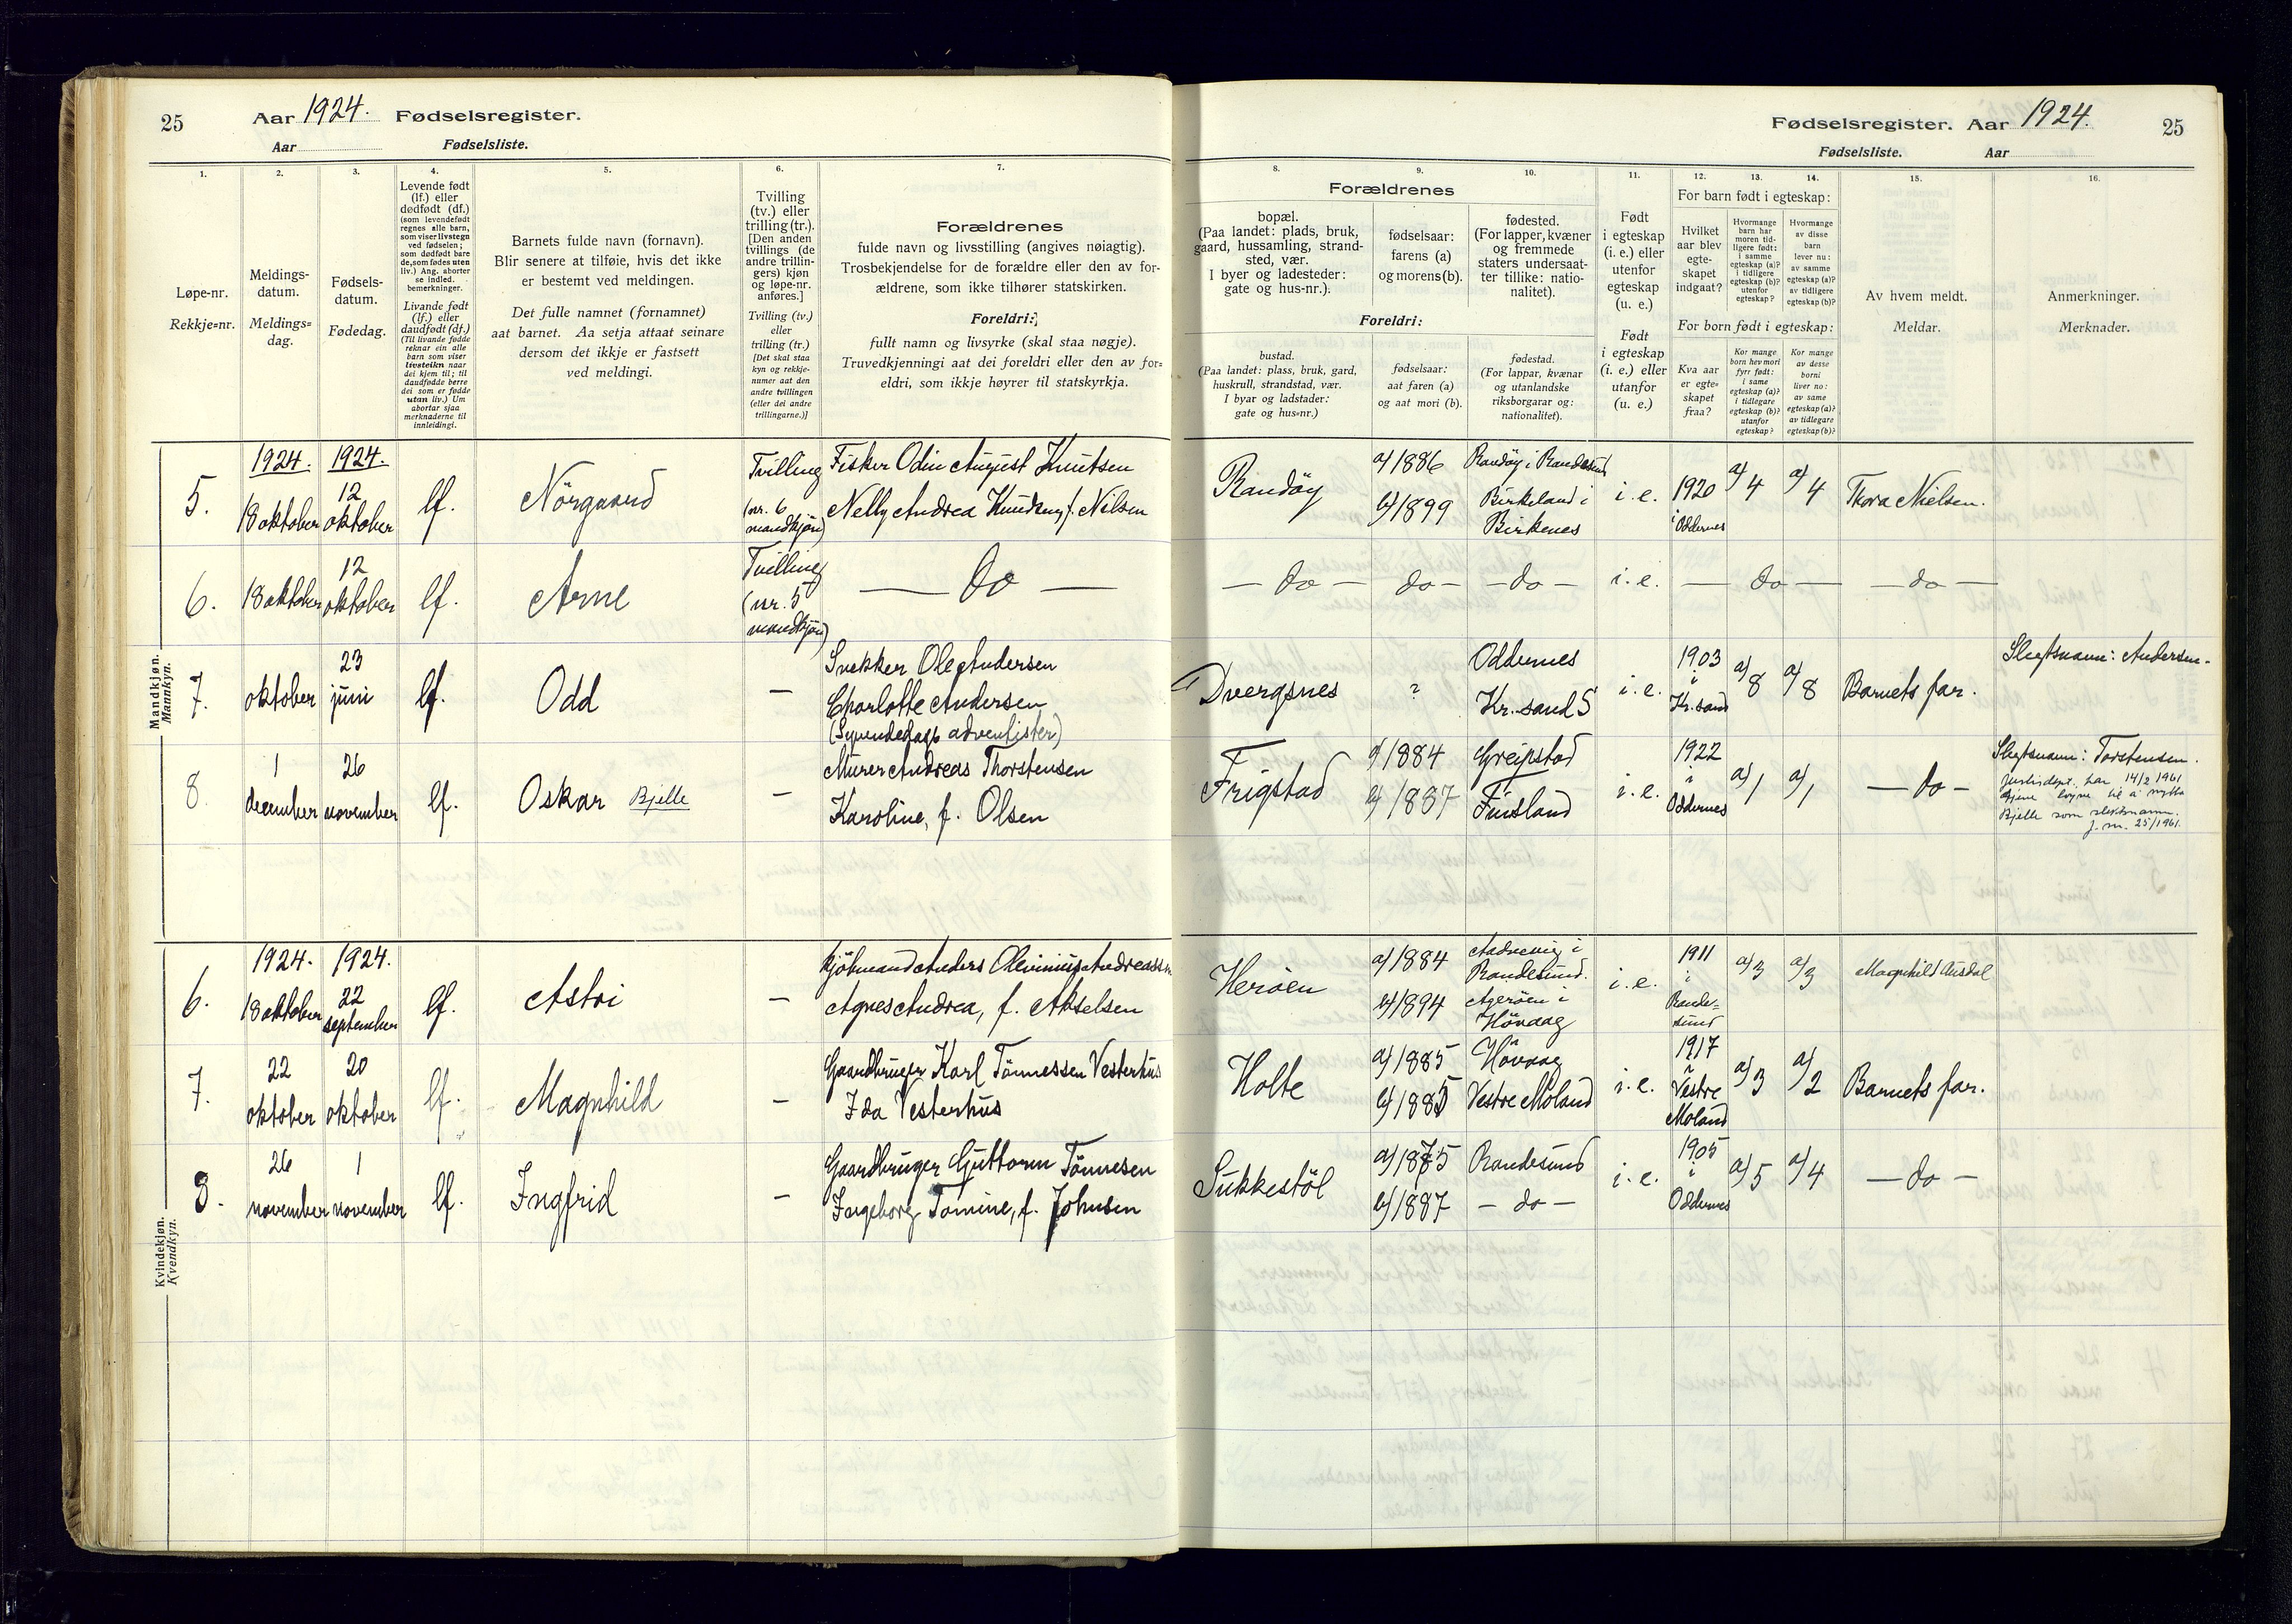 25
Aar 1924. Fødselsregister.
Aar Fødselsliste.
1.
2.
3.
4.
5.
6.
7.
Løpe-nr.
Rekkje=nr.
Meldings-
datum.
Meldings=
dag.
Fødsels-
datum.
Fødedag.
Levende født
(lf.) eller
dødfødt (df.)
(som levendefødt
regnes alle barn,
som viser livstegn
ved fødselen;
som dødfødt bare
de, som fødes uten
liv.) Ang. aborter
se indled.
bemerkninger.
Livande født
(lf.) eller
daudfødt (df.)
(Til livande fødde
reknar ein alle
barn som viser
livsteikn naar
dei kjem til; til
daudfødde berre
dei som er fødde
utan liv.) Um
abortar sjaa
merknaderne til
innleidingi.
Barnets fulde navn (fornavn).
Blir senere at tilføie, hvis det ikke
er bestemt ved meldingen.
Det fulle namnet (fornamnet)
aat barnet. Aa setja attaat seinare
dersom det ikkje er fastsett
ved meldingi.
Tvilling
(tv.) eller
trilling (tr.).
[Den anden
tvillings (de
andre trillin-
gers) kjøn
og løpe-nr.
anføres.]
Tvilling (tv.)
eller
trilling (tr.)
[Det skal staa
kyn og rekkje-
numer aat den
andre tvillingen
(eller dei andre
trillingarne.)]
Forældrenes
fulde navn og livsstilling (angives nøiagtig).
Trosbekjendelse for de forældre eller den av for-
ældrene, som ikke tilhører statskirken.
Foreldri:
fullt namn og livsyrke (skal staa nøgje).
Truvedkjenningi aat dei foreldri eller den av for=
eldri, som ikkje høyrer til statskyrkja.
Mandkjøn.
Mannkyn.
5.
1924.
18 oktober
1924.
12
oktober
lf.
Nörgaard
Tvilling
(nr. 6
mandkjön)
Fisker Odin August Knutsen
Nelly Andrea Knudsen, f. Nilsen
6.
18 oktober
12
oktober
lf.
Arne
Tvilling
(nr. 5
mandkjön)
— do —
7.
oktober
23
juni
lf.
Odd
—
Snekker Ole Andersen
Charlotte Andersen
(Syvendedags adventister)
8.
1
december
26
november
lf.
Oskar Bjelle
—
Murer Andreas Thorstensen
Karoline, f. Olsen
Kvindekjøn.
Kvendkyn.
6.
1924.
18 oktober
1924.
22
september
lf.
Astri
—
Sjömand Anders Olivinius Andreassen
Agnes Andrea, f. Akselsen
7.
22
oktober
20
oktober
lf.
Magnhild
—
Gaardbruger Karl Tönnessen Vesterhus
Ida Vesterhus
8.
26
november
1
november
lf.
Ingfrid
—
Gaardbruger Guttorm Tönnesen
Ingeborg Tomine, f. Johnsen
Fødselsregister. Aar 1924.
25
Fødselsliste. Aar
8.
9.
10.
11.
12.
13.
14.
15.
16.
Forældrenes
bopæl.
(Paa landet: plads, bruk,
gaard, hussamling, strand-
sted, vær.
I byer og ladesteder:
gate og hus-nr.).
fødselsaar:
farens (a)
og morens (b).
fødested.
(For lapper, kvæner
og fremmede
staters undersaat-
ter tillike: natio-
nalitet).
Foreldri:
bustad.
(Paa landet: plass, bruk, gard,
huskrull, strandstad, vær.
I byar og ladstader:
gate og hus=nr.)
fødselsaar:
aat faren (a)
og aat mori (b).
fødestad.
(For lappar, kvænar
og utanlandske
riksborgarar og:
nationalitet).
Født
i egteskap
(i. e.) eller
utenfor
egteskap
(u. e.)
Født
i egteskap
(i. e.) eller
utanfor
(u. e.)
For barn født i egteskap:
Hvilket
aar blev
egte-
skapet
indgaat?
Hvormange
barn har
moren tid-
ligere født:
i samme
egteskap (a)?
i tidligere
egteskap (b)?
utenfor
egteskap?
Hvormange
av disse
barn
lever nu:
av samme
egteskap (a)?
av tidligere
egteskap (b)?
For born født i egteskap:
Kva aar
er egte=
skapet
fraa?
Kor mange
born hev mori
fyrr født:
i same
egteskap (a)?
i tidlegare
egteskap (b)?
utanfor
egteskap?
Kor mange
av desse
borni
liver no:
av same
egteskap (a)?
av tidlegare
egteskap (b)?
Av hvem meldt.
Meldar.
Anmerkninger.
Merknader.
Randöy
a) 1886
b) 1899
Randöy i Randesund
Birkeland i
Birkenes
i. e.
1920
i Oddernes
a) 4
a) 4
Thora Nielsen.
— do —
do —
— do —
i. e.
— do —
— do —
Dvergsnes
?
Oddernes
Kr.sand S
i. e.
1903
i
Kr.sand
a) 8
a) 8
Barnets far.
Slegtsnavn: Andersen.
Frigstad
a) 1884
b) 1887
Greipstad
Finsland
i. e.
1922
i
Oddernes
a) 1
a) 1
— do —
Slegtsnavn: Torstensen.
Justisdept. har 14/2 1961
gjeve løyve til å nytta
Bjelle som slektsnamn.
J. nr. 25/1961.
Heröen
a) 1884
b) 1894
Randesund.
Ageröen i
Hövaag
i. e.
1911
i
Rande=
sund
a) 3
a) 3
Magnhild Ausdal
Holte
a) 1885
b) 1885
Hövaag
Vestre Moland
i. e.
1917
i
Vestre
Moland
a) 3
a) 2
Barnets far.
Sukkestöl
a) 1875
b) 1887
Randesund
— do —
i. e.
1905
i
Oddernes
a) 5
a) 4
— do —